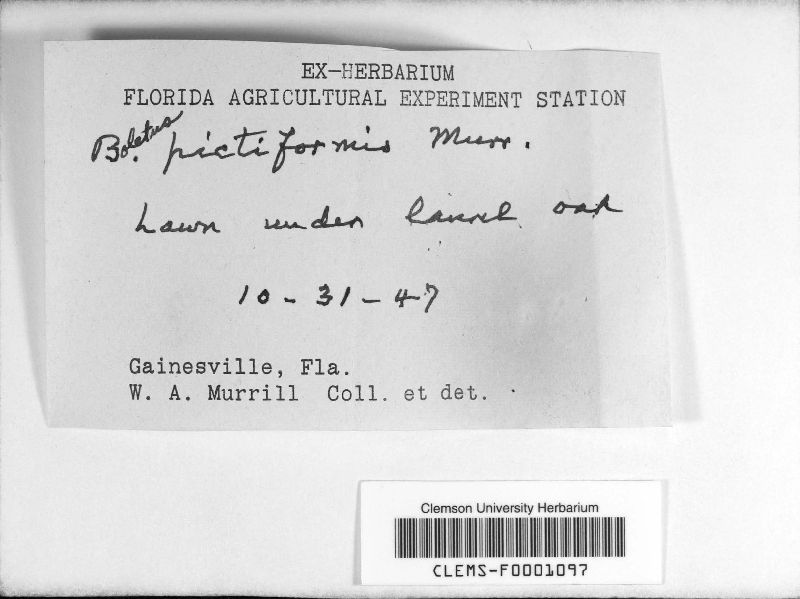 EX-HERBARIUM
FLORIDA AGRICULTURAL EXPERIMENT STATION
Boletus pictiformis Murr.
Lawn under laurel oak
10-31-47
Gainesville, Fla.
W. A. Murrill Coll. et det.
Clemson University Herbarium
CLEMS-F0001097